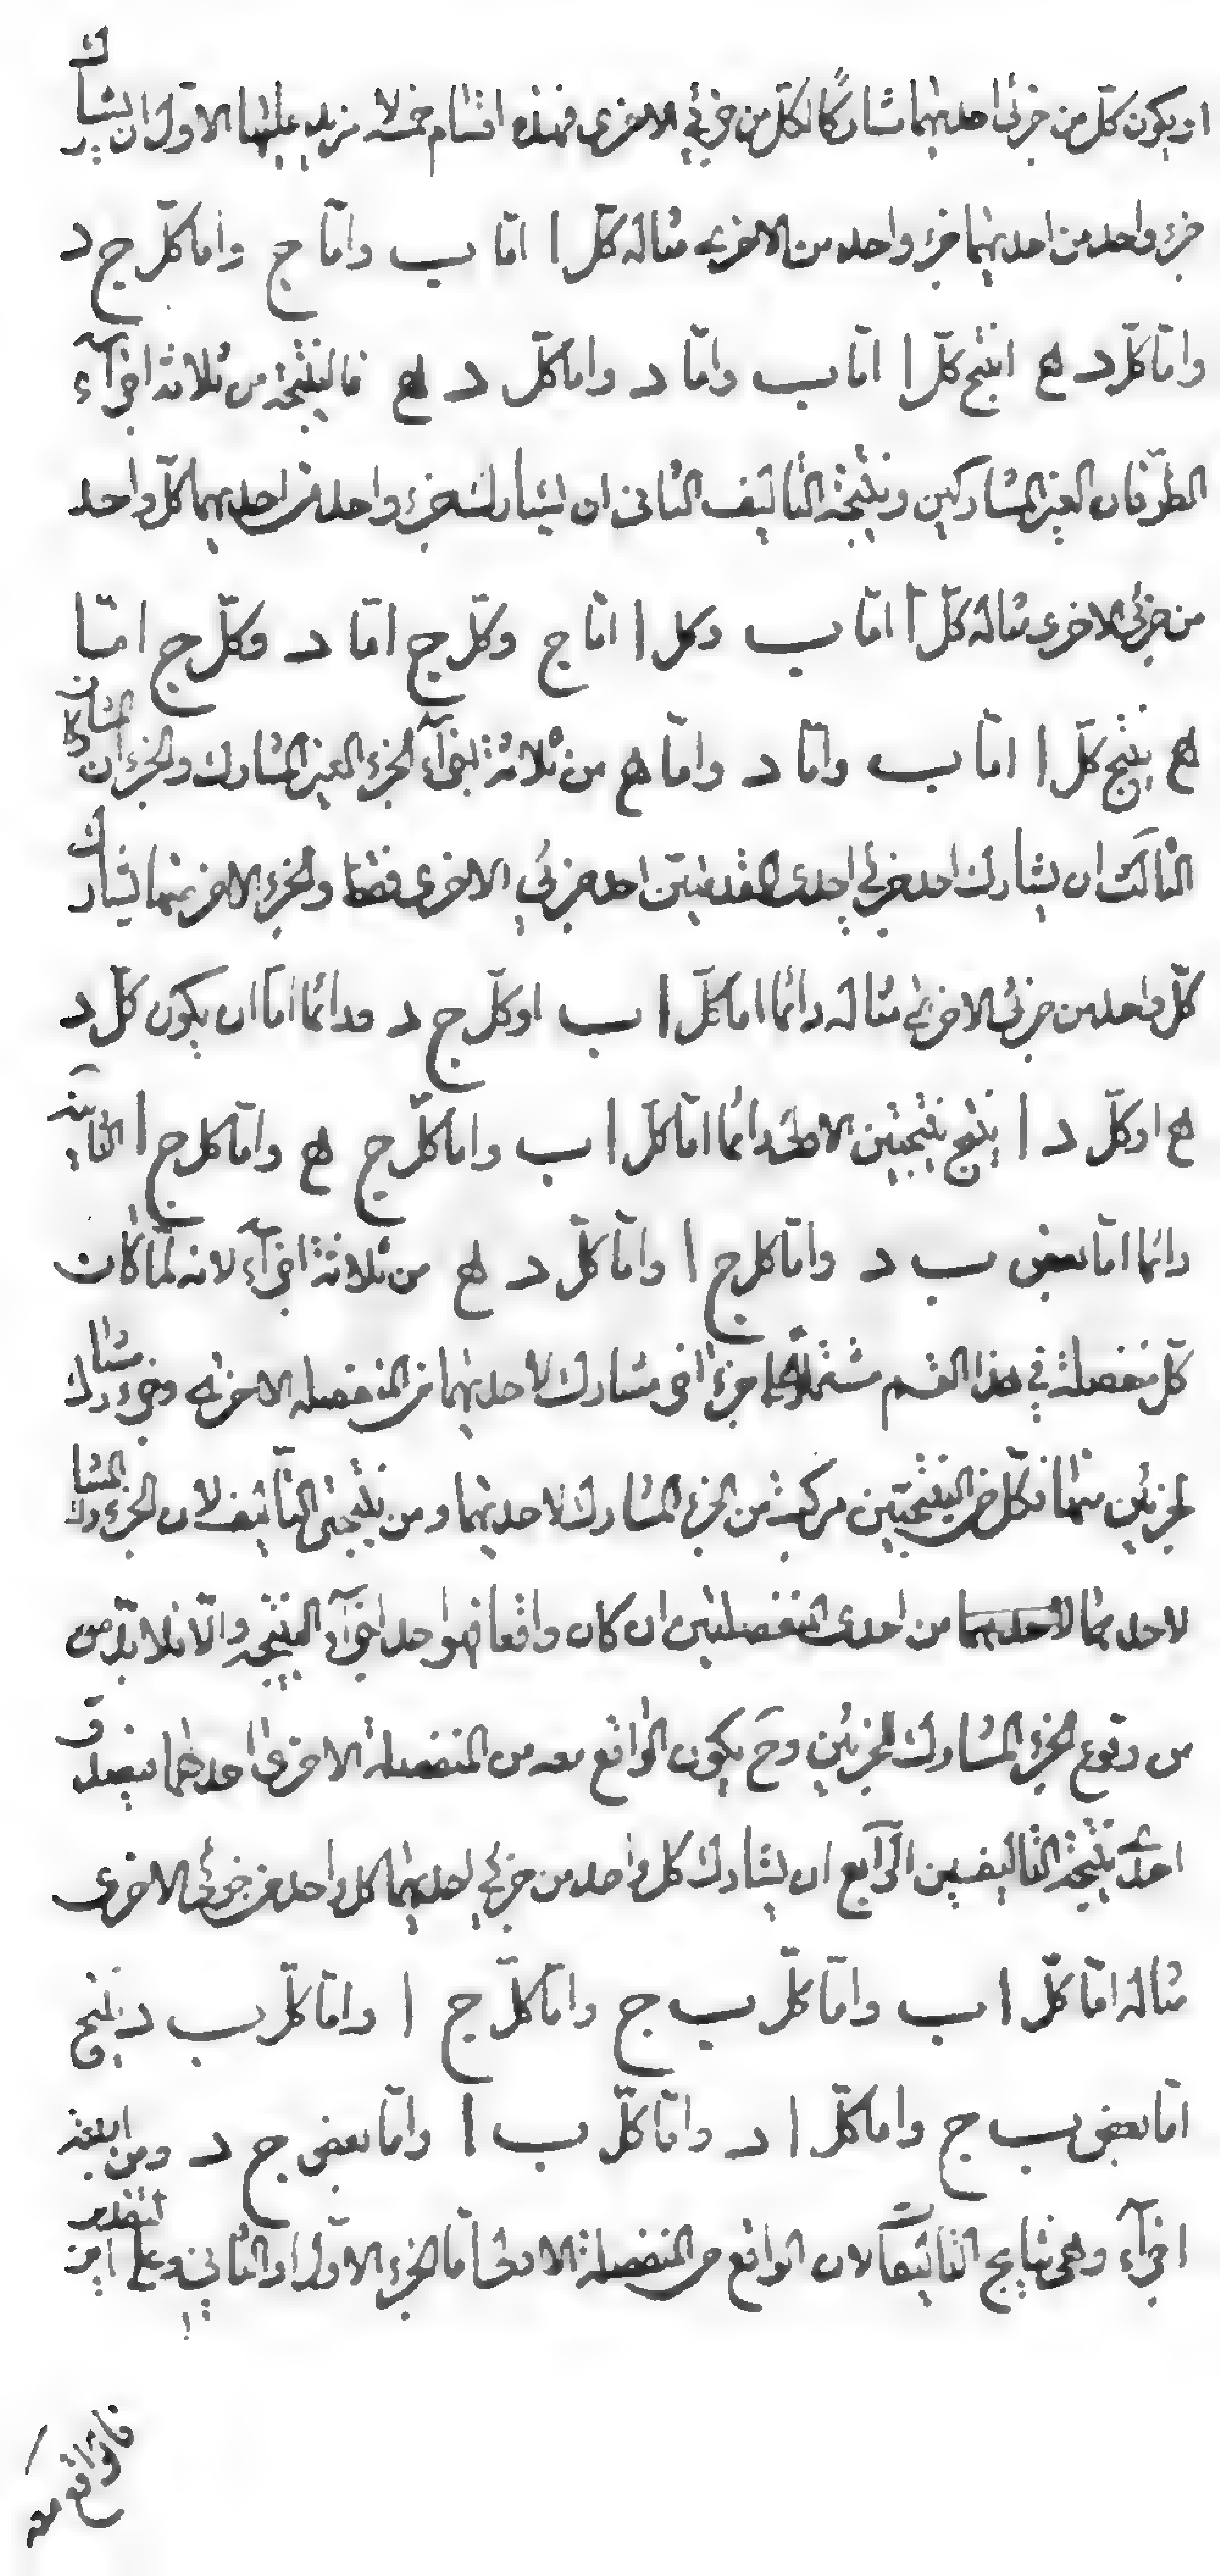 او يكون كلّ من جزئى احديهما مشاركًا لكلّ من جزئي الاخرى فهذه اقسام خمسة لا مزيد عليها الاوّل ان يشارك
جزء واحد من احديهما جزء واحد من الاخرى مثاله كلّ ا امّا ب وامّا ج واما كلّ ج د
وامّا كلّ د ه انتج كلّ ا امّا ب وامّا د واما كلّ د ه فالنتيجة من ثلاثة اجزآء
الطرفان الغير المشاركين ونتيجة التأليف الثانى ان يشارك جزء واحد من احديهما كلّ واحد
من جزئى الاخرى مثاله كلّ ا امّا ب وكل ا امّا ج وكلّ ج امّا د وكلّ ج امّا
ه ينتج كلّ ا امّا ب وامّا د وامّا ه من ثلاثة اجزآء الجزء الغير المشارك والجزءان المشاركان
الثالث ان يشارك احد جزئي احدى المقدمتين احد جزئي الاخرى فقط والجزء الاخر منهما يشارك
كلّ واحد من جزئى الاخرى مثاله دائما اما كلّ ا ب او كلّ ج د ودائما امّا ان يكون كلّ د
ه او كلّ د ا ينتج نتيجتين الاولى دائما امّا كلّ ا ب واما كلّ ج ه وامّا كل ج ا الثانية
دائما امّا بعض ب د وامّا كل ج ا وامّا كلّ د ه من ثلاثة اجزآء لانه لمّا كانت
كلّ منفصلة في هذا القسم مشتملة على جزء اخر مشارك لاحديهما من المنفصلة الاخرى وجزء مشارك
لجزئين منها فكلّ من النتيجتين مركبة من الجزء المشارك لاحديهما ومن نتيجتى التأليف لان الجزء المشارك
لاحديهما من احدى المنفصلتين ان كان واقعا فهو احد اجزآء النتيجة والّا فلا بدّ من
من وقوع الجزء المشارك للجزئين وح يكون الواقع معه من المنفصلة الاخرى احدهما فيصدق
احدى نتيجة التأليفين الرّابع ان يشارك كل واحد من جزئي احديهما كل واحد من جزئى الاخرى
مثاله امّا كلّ ا ب وامّا كلّ ب ج وامّا كلّ ج ا وامّا كلّ ب د ينتج
امّا بعض ب ج واما كلّ ا د وامّا كلّ ب ا وامّا بعض ج د ومن اربعة
اجزآء وهى نتايج التأليفات لان الواقع من المنفصلة الاولى امّا الجزء الاول او الثاني وعلى التقديرين
فالواقع معه